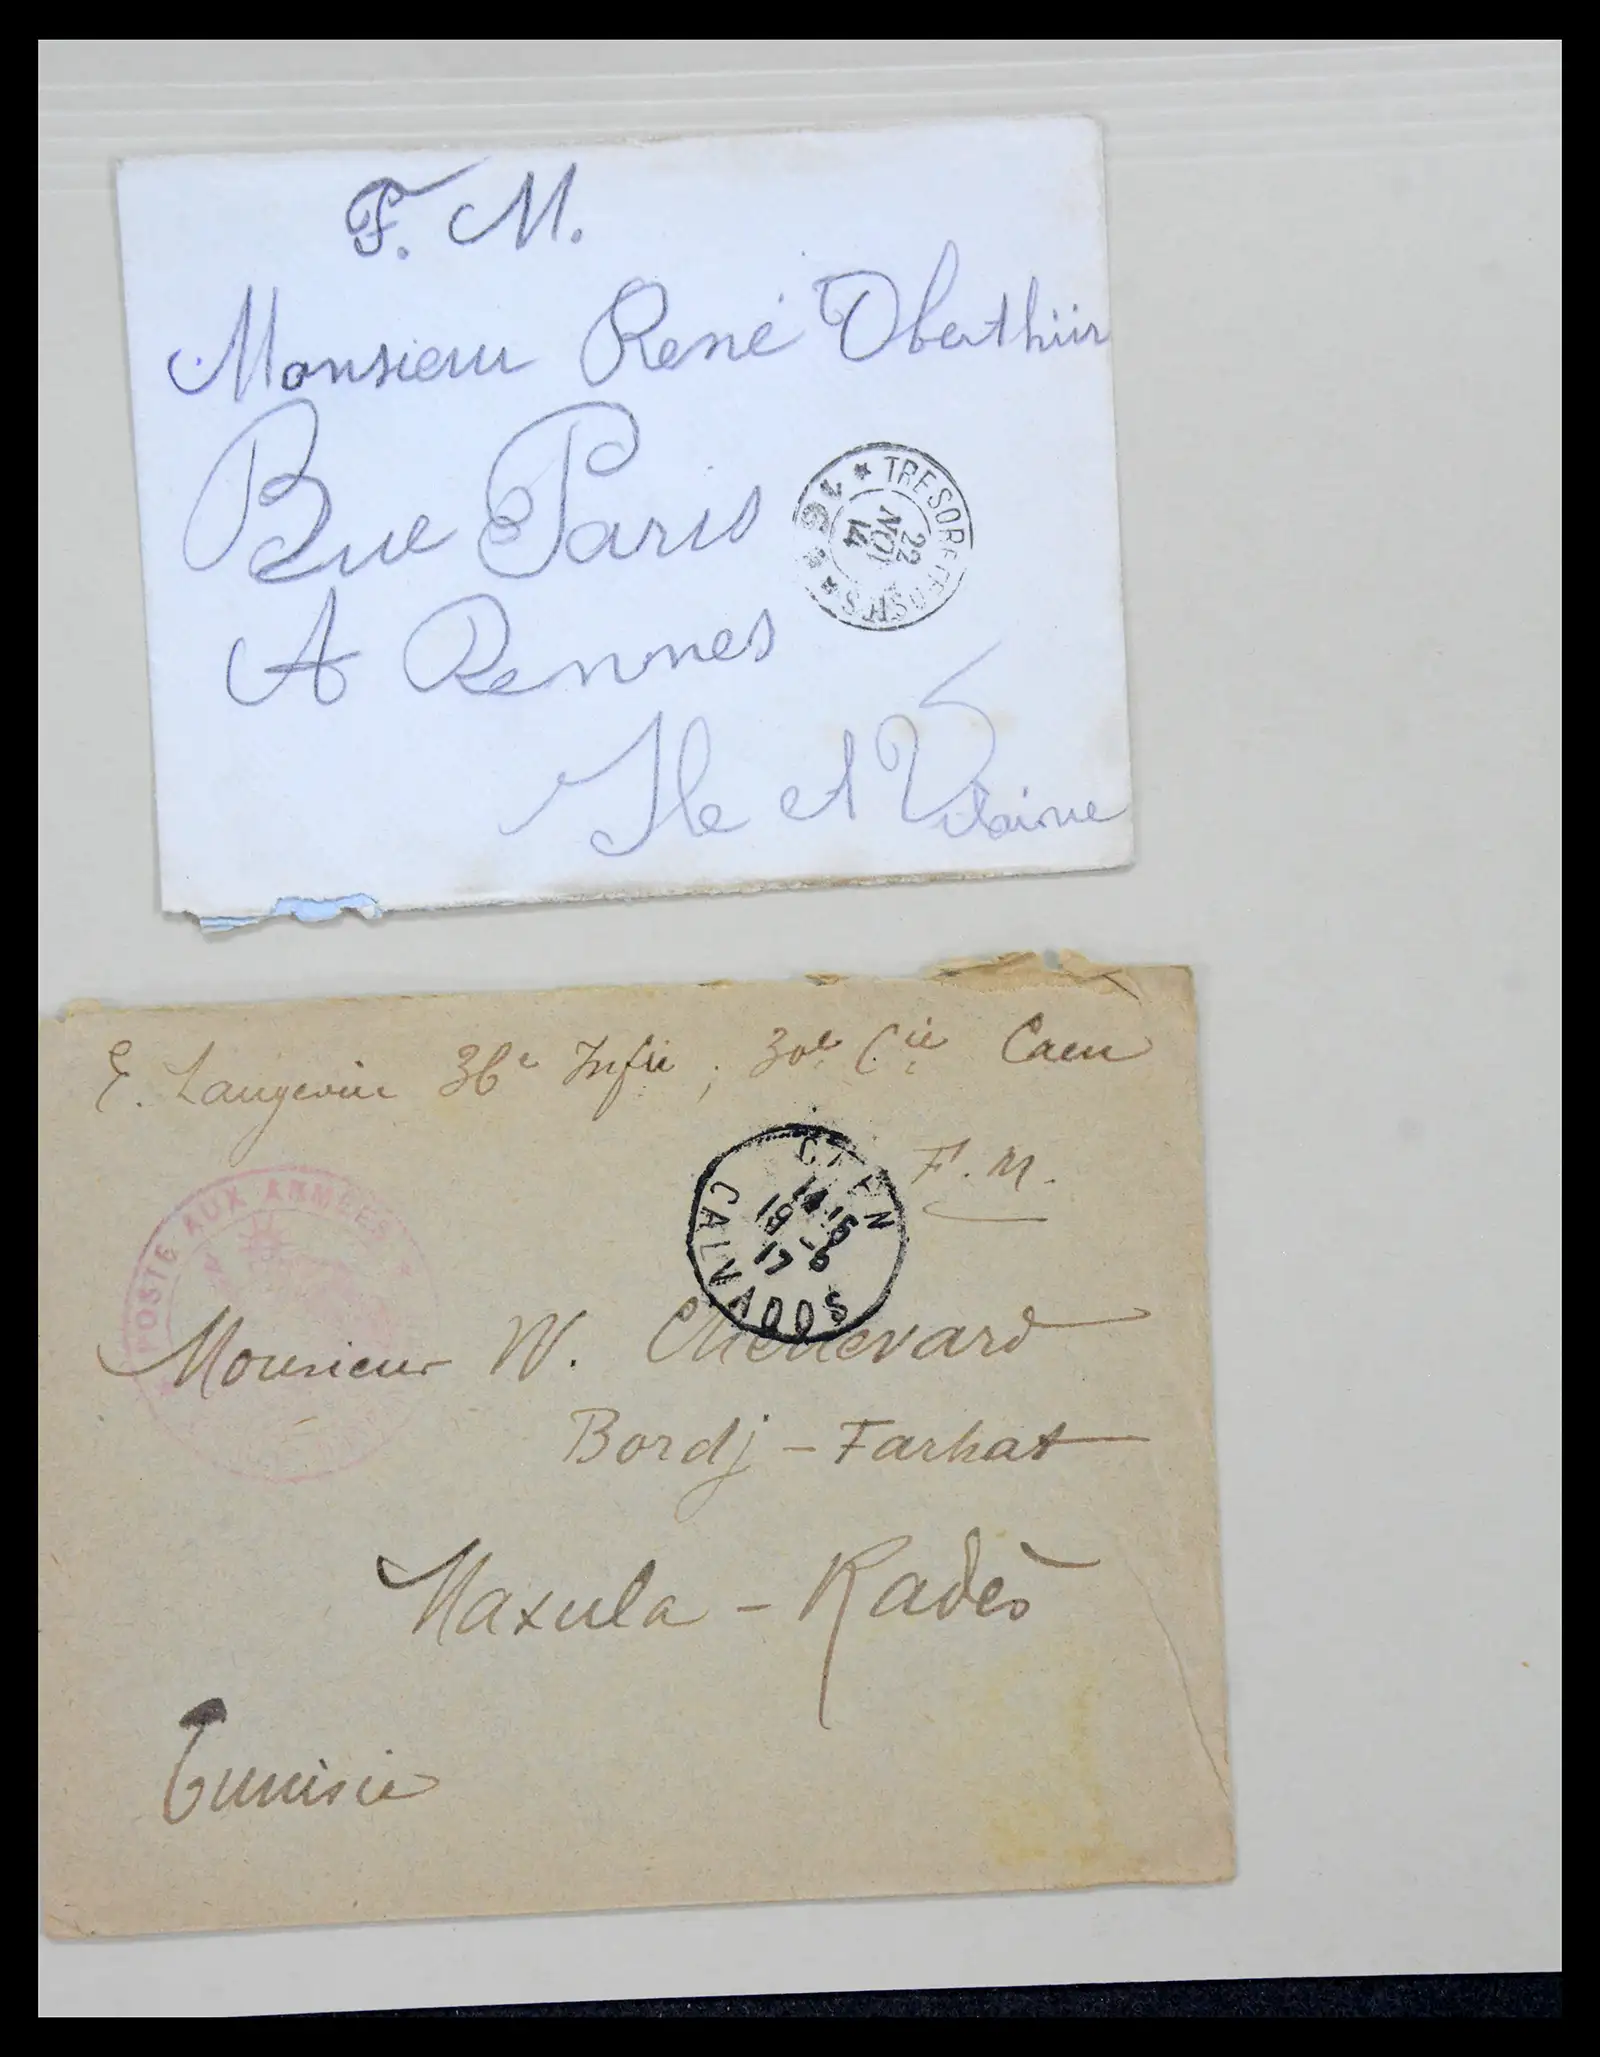 F. M.
Monsieur René Oberthür
Rue Paris
A Rennes
Ile et Vilaine
* TRESOR ET POSTES *
22
NOV
14
E. Langevin 36e Infie, 30e Cie Caen
F. M.
CAEN
14 15
19-8
17
CALVADOS
POSTE AUX ARMEES *
Monsieur W. Chenevard
Bordj - Farhat
Maxula - Radès
Tunisie